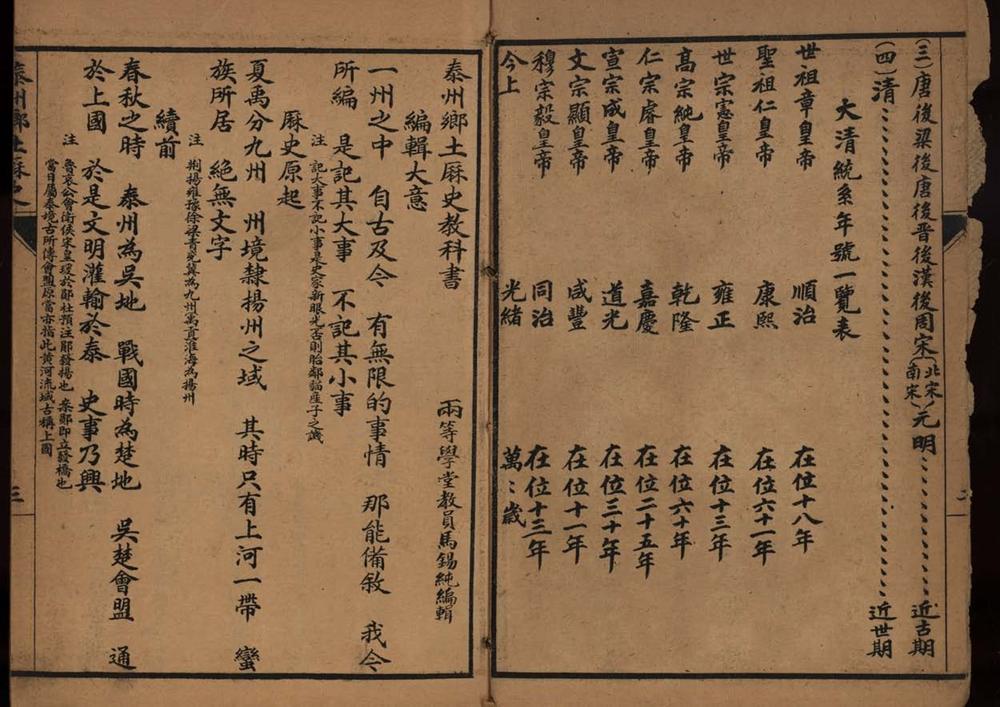 (三)唐後梁後唐後晉後漢後周宋(北宋南宋)元明、、、、、、、、近古期
(四)清、、、、、、、、、、、、、、、、、、、、、近世期
大清統系年號一覽表
世祖章皇帝 順治 在位十八年
聖祖仁皇帝 康熙 在位六十一年
世宗憲皇帝 雍正 在位十三年
高宗純皇帝 乾隆 在位六十年
仁宗睿皇帝 嘉慶 在位二十五年
宣宗成皇帝 道光 在位三十年
文宗顯皇帝 咸豐 在位十一年
穆宗毅皇帝 同治 在位十三年
今上 光緒 萬〻歲
泰州鄉土厤史教科書 兩等學堂教員馬錫純編輯
編輯大意
一州之中 自古及今 有無限的事情 那能備敘 我今
所編 是記其大事 不記其小事
注 記大事不記小事是史家新眼光否則貽鄰貓產子之誚
厤史原起
夏禹分九州 州境隸揚州之域 其時只有上河一帶 蠻
族所居 絕無文字
注 荊揚雍豫徐梁青兗冀為九州禹貢淮海為揚州
續前
春秋之時 泰州為吳地 戰國時為楚地 吳楚會盟 通
於上國 於是文明灌輸於泰 史事乃興
注 魯哀公會衛侯宋皇瑗於鄖杜預注鄖發揚也 案鄖即立發橋也
當日屬泰境古所傳會盟原當亦指此黃河流域古稱上國
泰州鄉土厤史
三